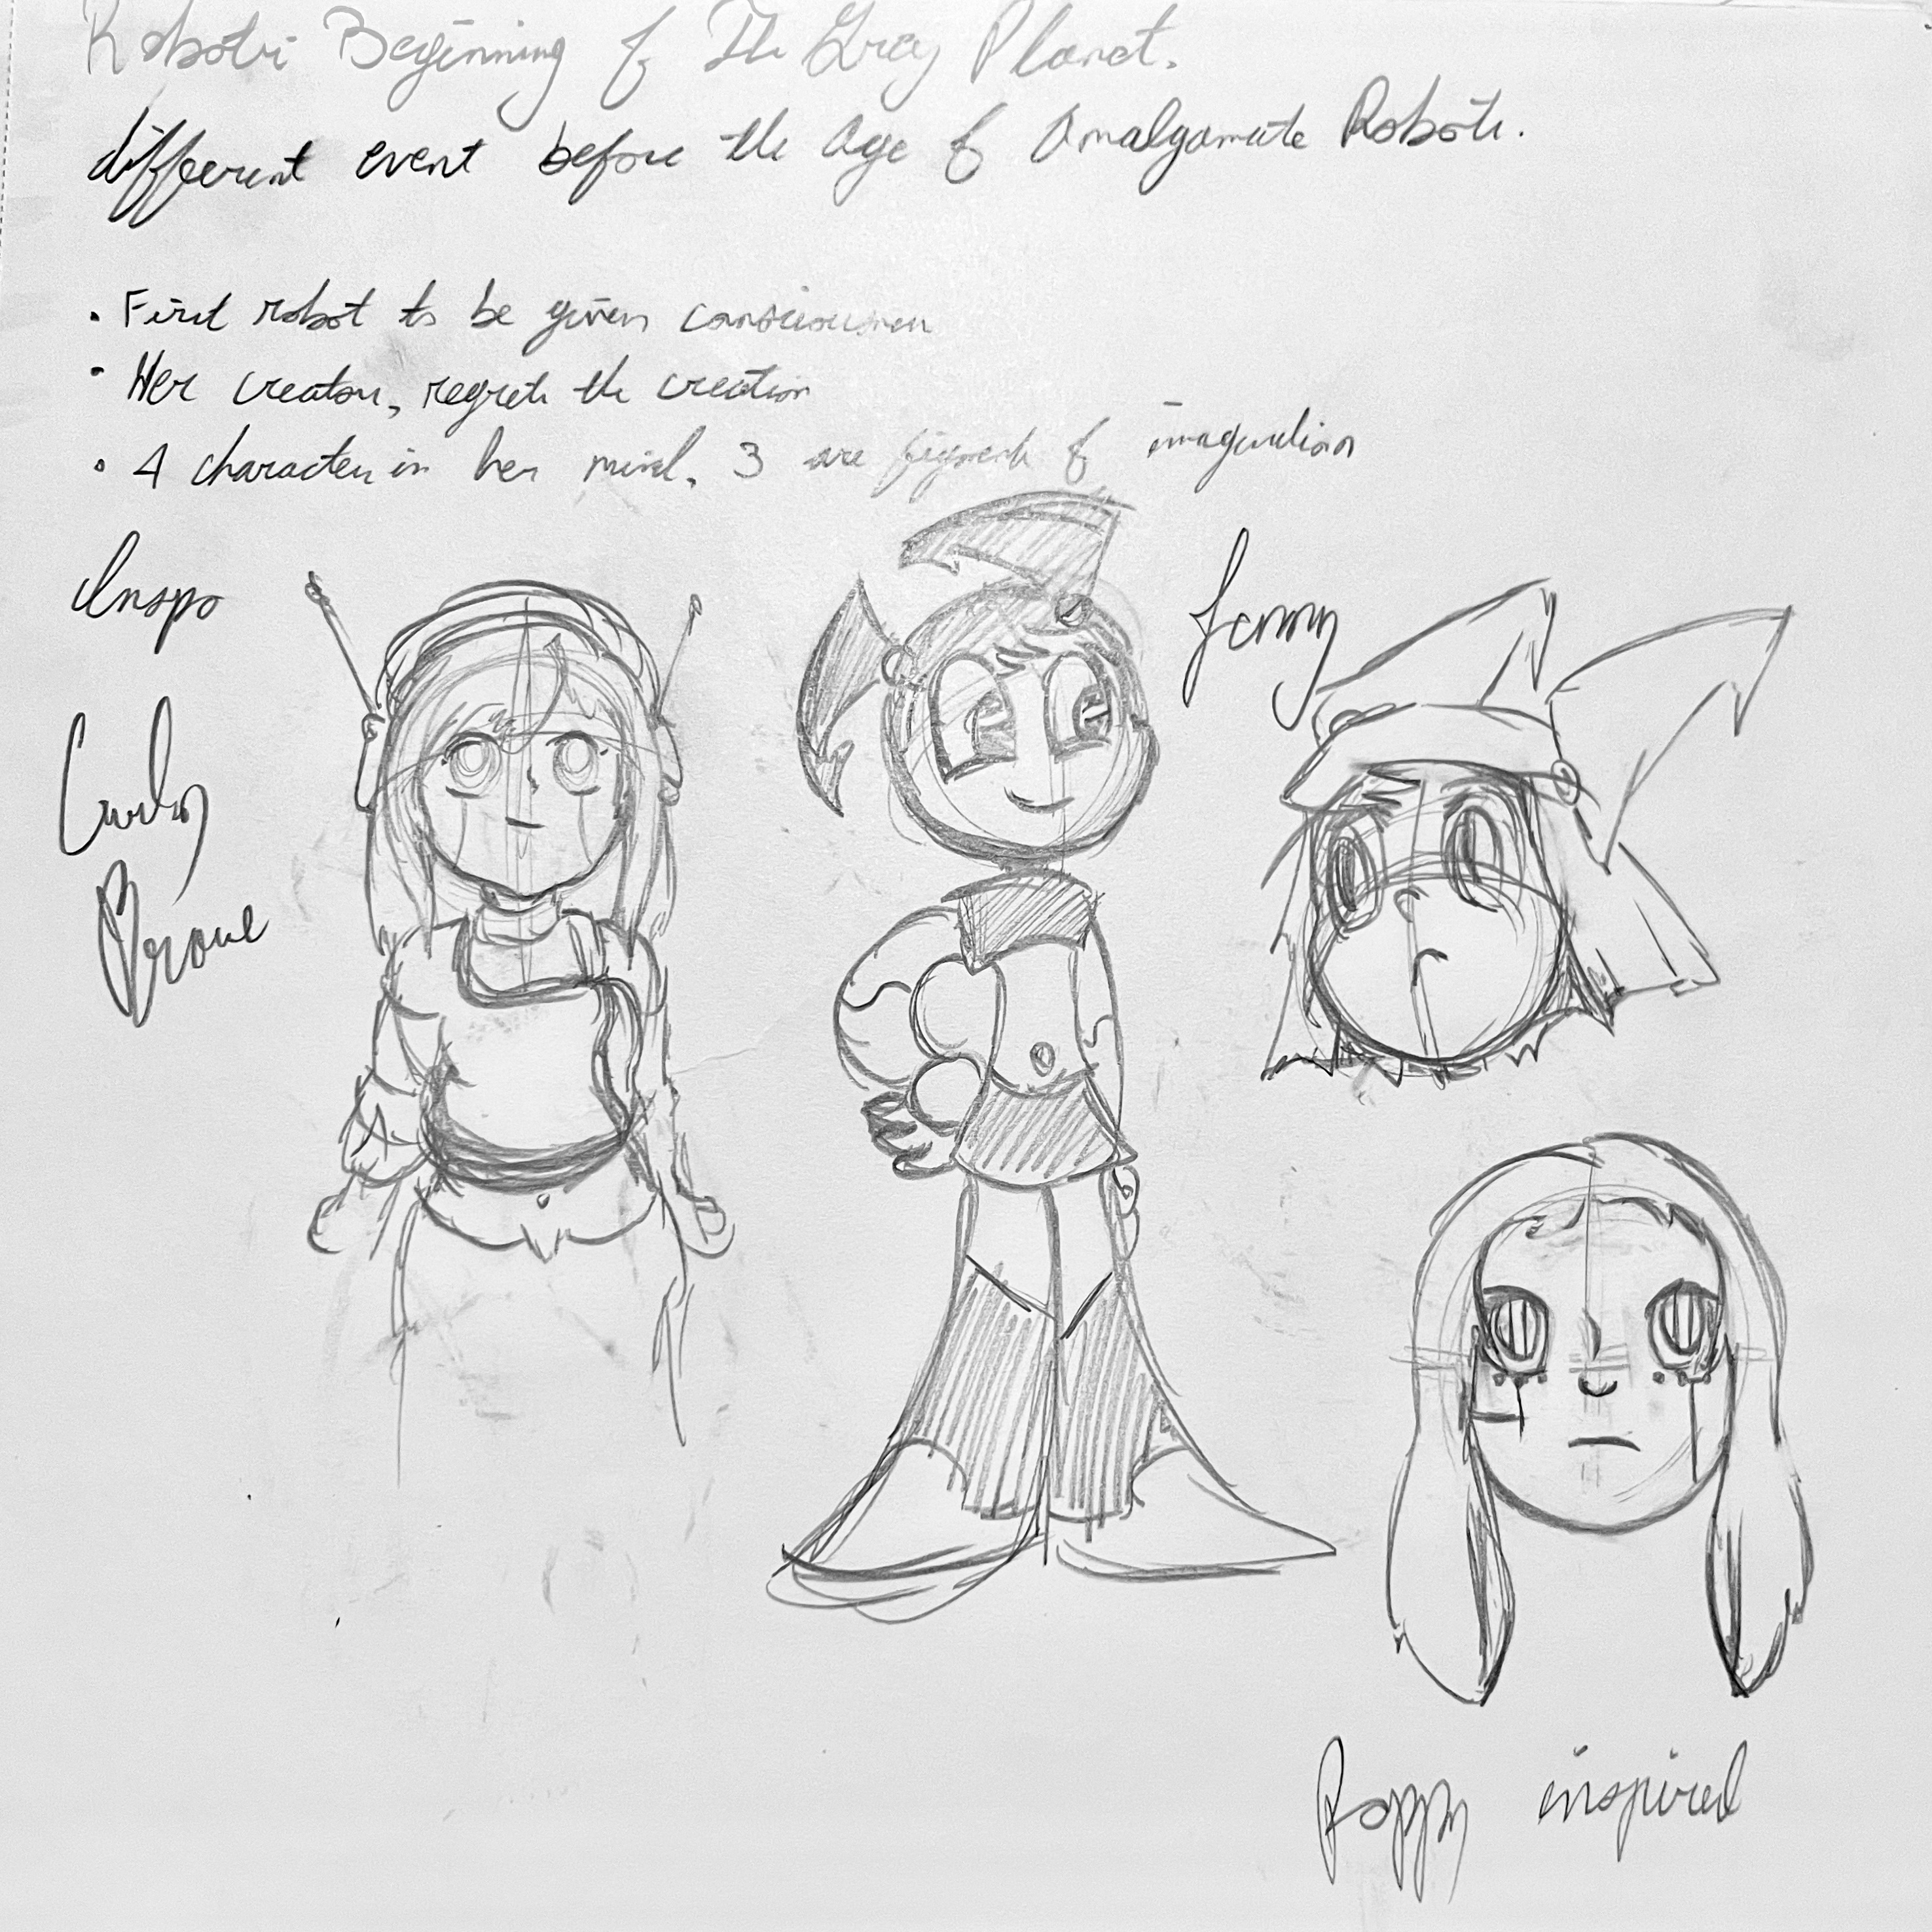 Robotic Beginning of The Grey Planet.
different event before the age of Amalgamate Robots.
• First robot to be given consciousness
• Her creator, regrets the creation
• 4 characters in her mind, 3 are figments of imagination
Inspo
Curly
Brace
Jenny
Poppy inspired